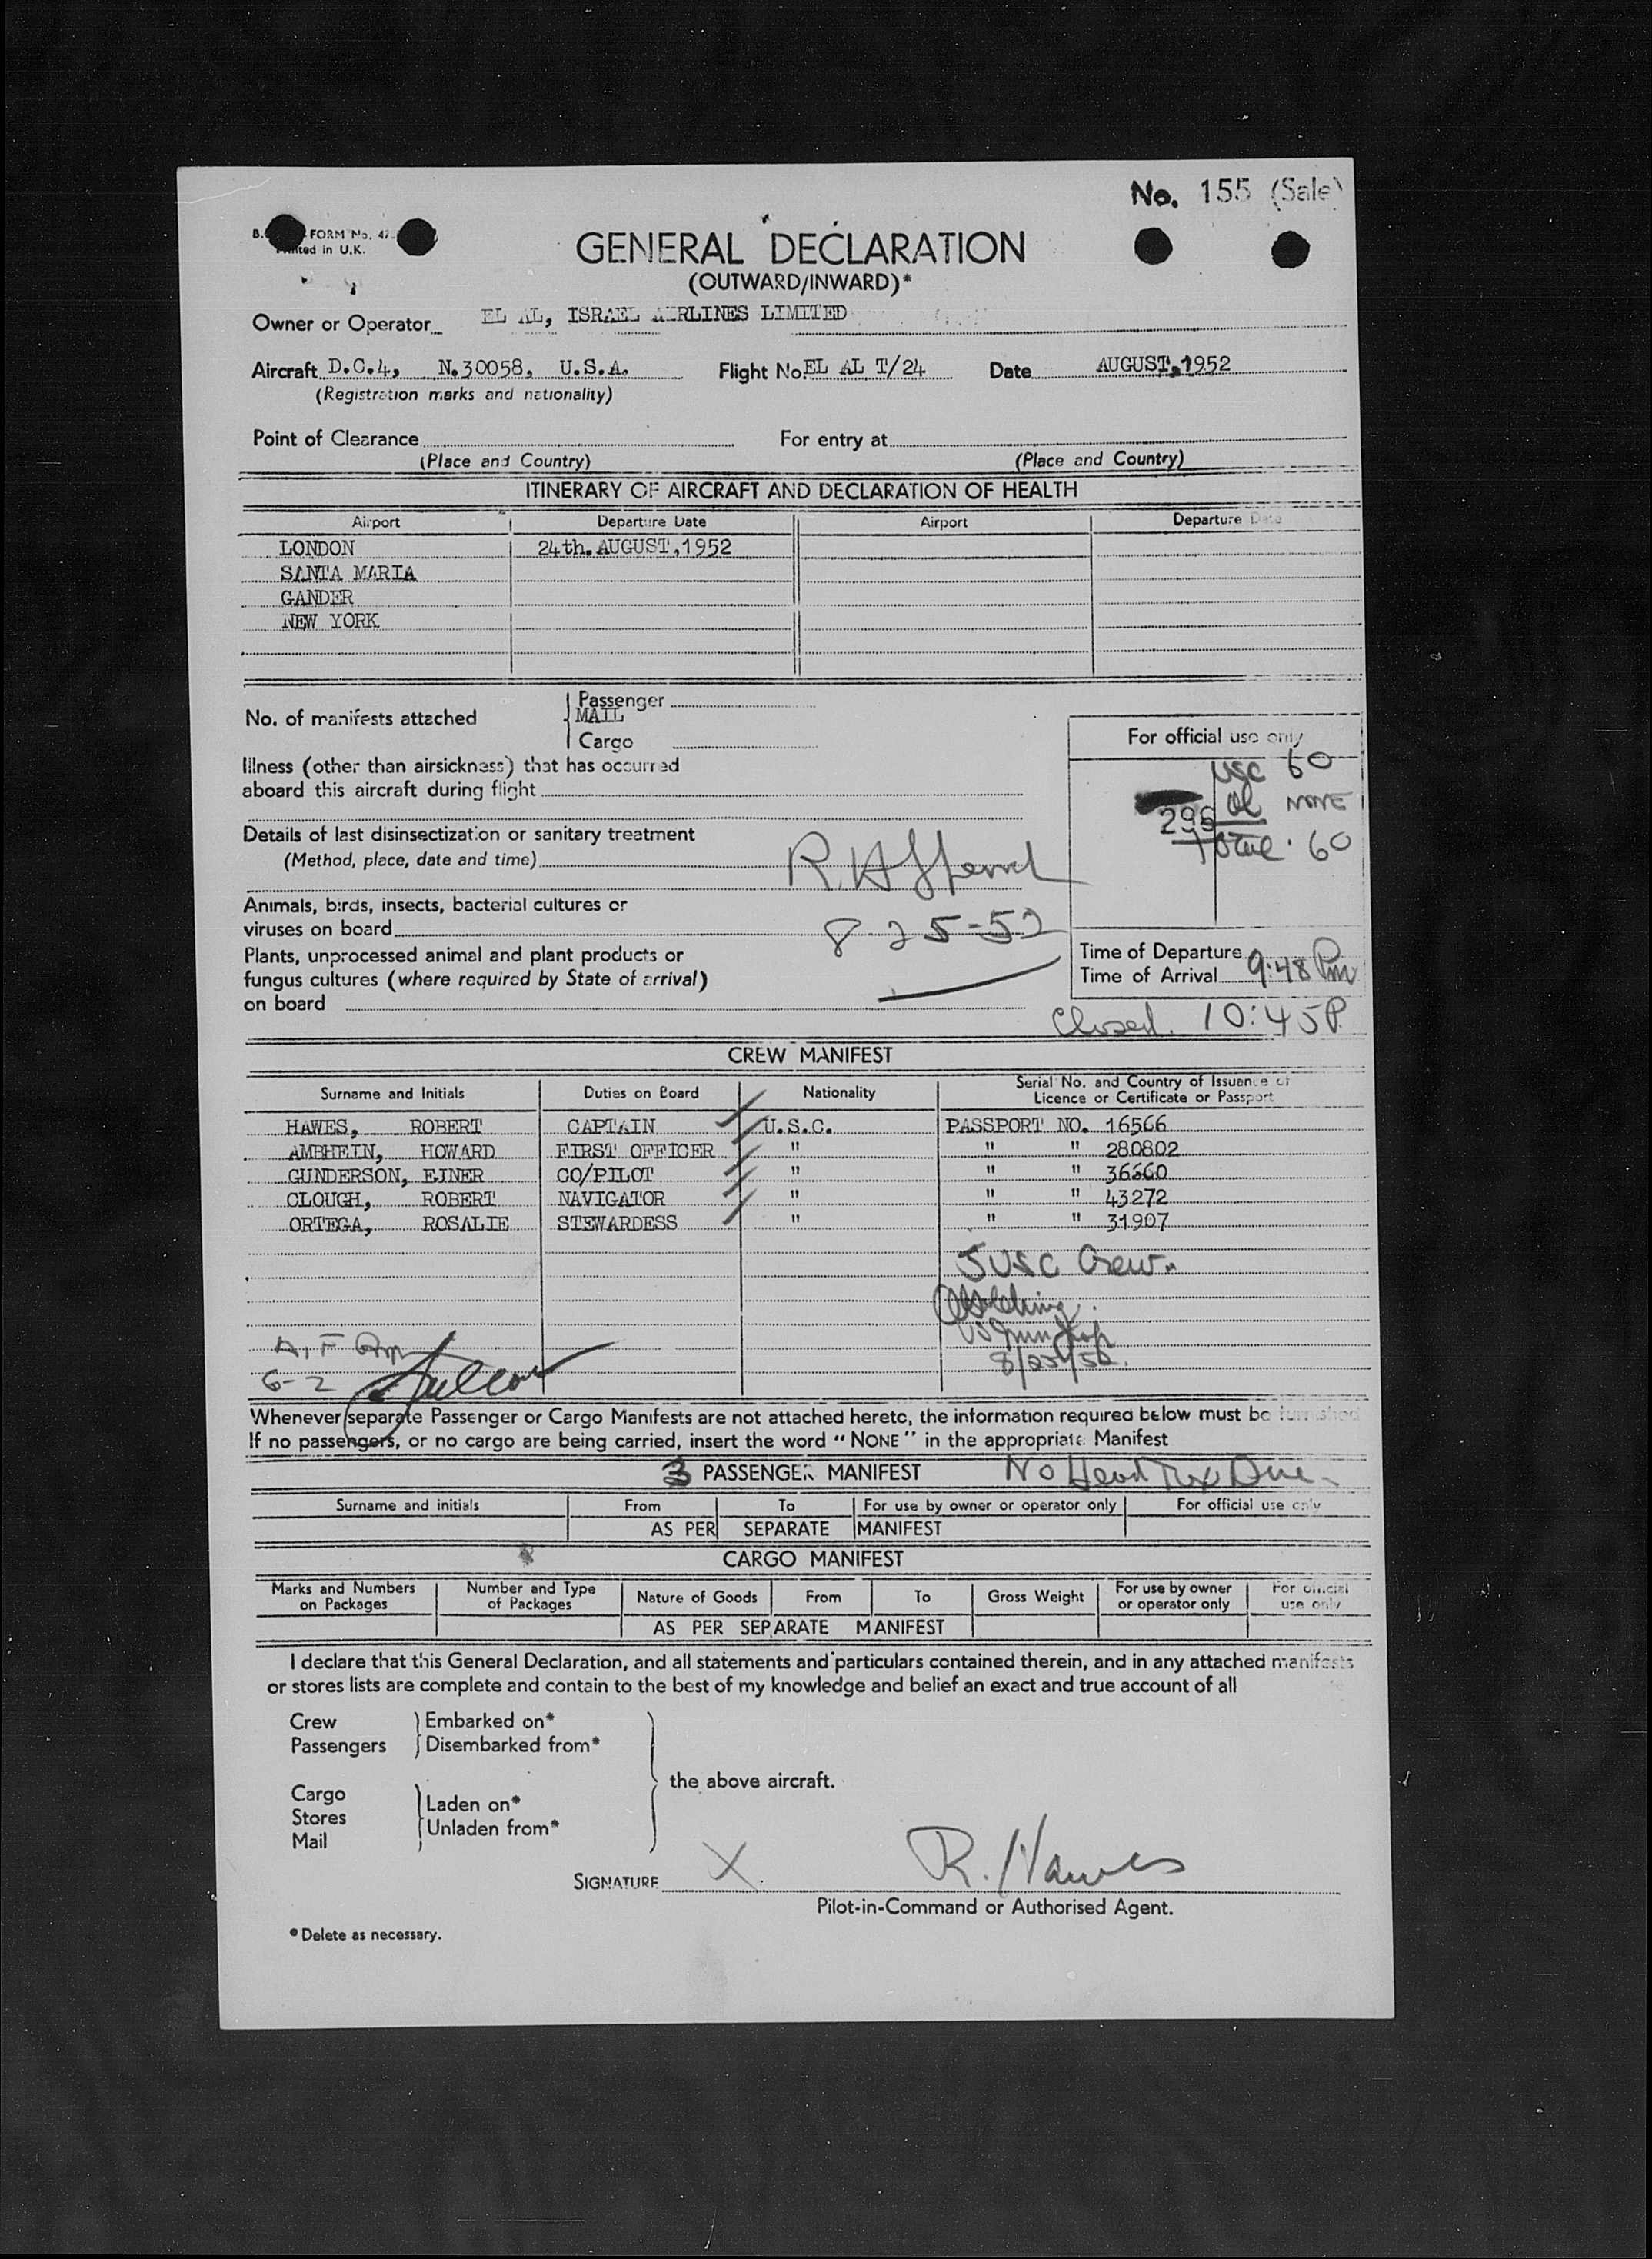 No. 155 (Sale)
FORM No.
Printed in U.K.
GENERAL DECLARATION
(OUTWARD/INWARD)*
Owner or Operator EL AL, ISRAEL AIRLINES LIMITED
Aircraft D.C.4, N.30058, U.S.A. Flight No. EL AL T/24 Date AUGUST, 1952
(Registration marks and nationality)
Point of Clearance For entry at
(Place and Country) (Place and Country)
ITINERARY OF AIRCRAFT AND DECLARATION OF HEALTH
Airport Departure Date Airport Departure Date
LONDON 24th. AUGUST, 1952
SANTA MARIA
GANDER
NEW YORK
No. of manifests attached
Passenger
MAIL
Cargo
For official use only
Illness (other than airsickness) that has occurred
aboard this aircraft during flight
USC 60
NONE
295
Total 60
Details of last disinsectization or sanitary treatment
(Method, place, date and time)
Animals, birds, insects, bacterial cultures or
viruses on board
8-25-52
Plants, unprocessed animal and plant products or
fungus cultures (where required by State of arrival)
on board
Time of Departure
Time of Arrival 9:48 Pm
Closed 10:45 P.
CREW MANIFEST
Surname and Initials Duties on Board Nationality Serial No. and Country of Issuance of Licence or Certificate or Passport
HAWES, ROBERT CAPTAIN U.S.C. PASSPORT NO. 16566
AMBHEIN, HOWARD FIRST OFFICER " " " 280802
GUNDERSON, EINER CO/PILOT " " " 36660
CLOUGH, ROBERT NAVIGATOR " " " 43272
ORTEGA, ROSALIE STEWARDESS " " " 31907
5 USC Crew.
US Imm Insp
8/25/52.
6-2
Whenever separate Passenger or Cargo Manifests are not attached hereto, the information required below must be furnished
If no passengers, or no cargo are being carried, insert the word "NONE" in the appropriate Manifest
3 PASSENGER MANIFEST No Head Tax Due
Surname and initials From To For use by owner or operator only For official use only
AS PER SEPARATE MANIFEST
CARGO MANIFEST
Marks and Numbers on Packages Number and Type of Packages Nature of Goods From To Gross Weight For use by owner or operator only For official use only
AS PER SEPARATE MANIFEST
I declare that this General Declaration, and all statements and particulars contained therein, and in any attached manifests
or stores lists are complete and contain to the best of my knowledge and belief an exact and true account of all
Crew Embarked on*
Passengers Disembarked from*
the above aircraft.
Cargo
Stores Laden on*
Mail Unladen from*
SIGNATURE X R. Hawes
Pilot-in-Command or Authorised Agent.
* Delete as necessary.